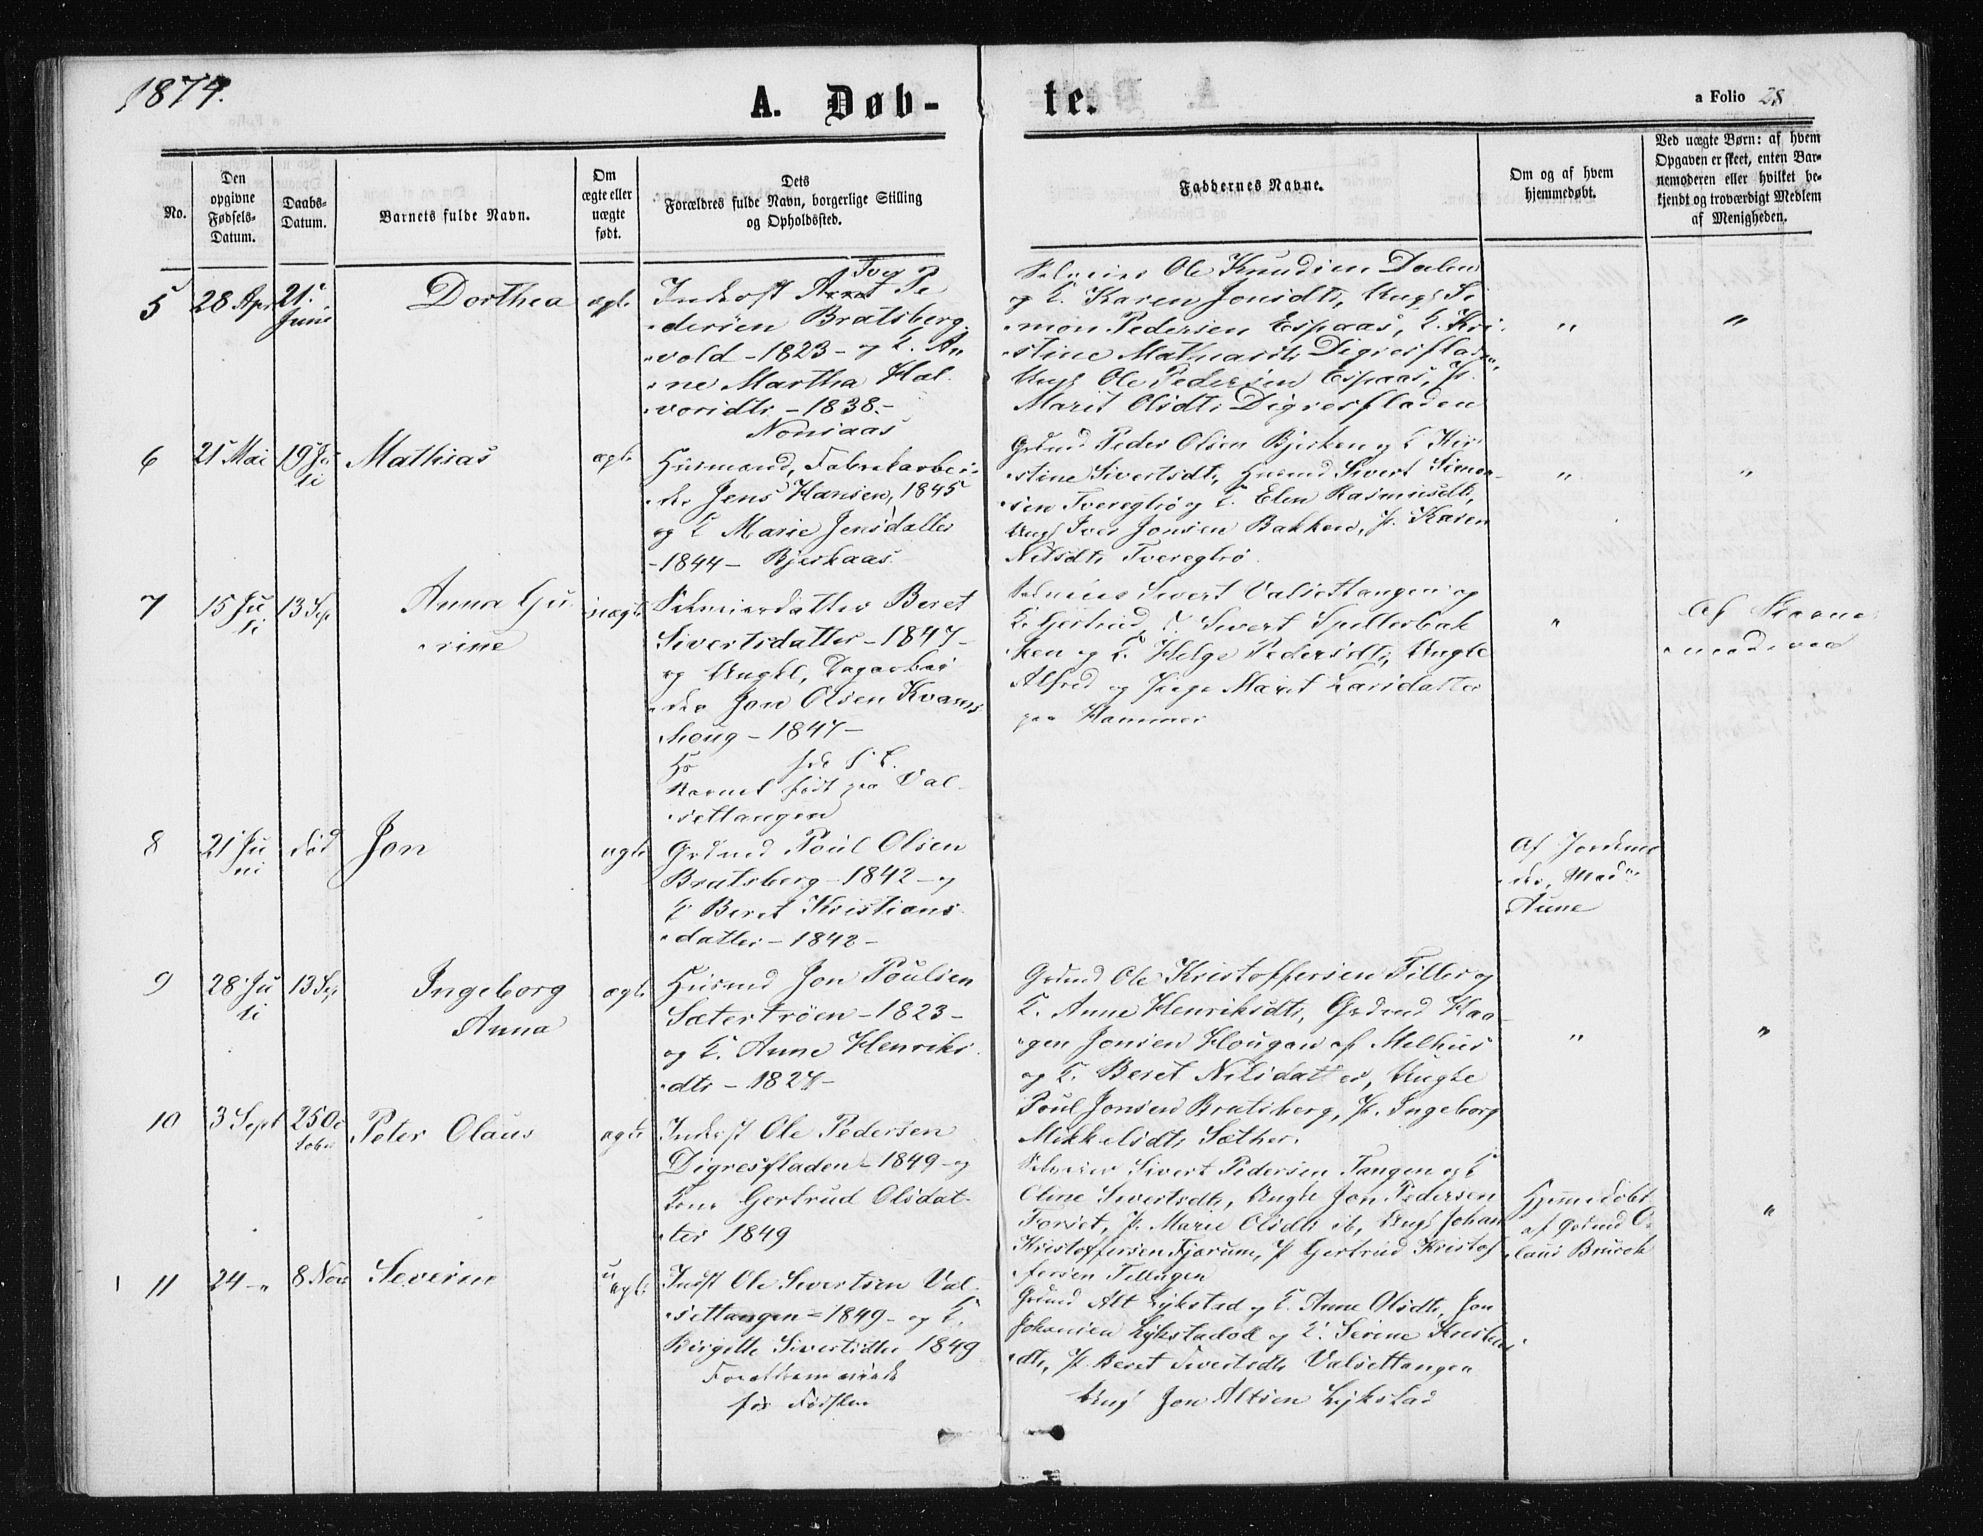 1874.
A. Døb-
te.
a Folio 28
No.
Den
opgivne
Fødsels-
Datum.
Daabs-
Datum.
Barnets fulde Navn.
Om
ægte eller
uægte
født.
Dets
Forældres fulde Navn, borgerlige Stilling
og Opholdssted.
Faddernes Navne.
Om og af hvem
hjemmedøbt.
Ved uægte Børn: af hvem
Opgaven er skeet, enten Bar-
nemoderen eller hvilket be-
kjendt og troværdigt Medlem
af Menigheden.
5
28 Apr
21.
Juni
Dorthea
ægte
Inderst Arnt Pe
dersen Bratsberg
vold - 1823 - og K. An
ne Martha Hal
vorsdtr - 1838. -
Nonsaas
Selveier Ole Knudsen Dalen
og K. Karen Jonsdtr, Ungk Si
mon Pedersen Espaas, K. Kri
stine Mathiasdtr Digresfladen,
Ungk Ole Pedersen Espaas, P.
Marit Olsdtr Digresfladen
"
"
6
21 Mai
19 Ju
li
Mathias
ægte
Husmand, Fabrikarbei
der Jens Hansen, 1845
og K Marie Jensdatter
- 1844 - Bjerkaas
Grdmd Peder Olsen Bjerken og K Kir
stine Sivertsdtr, Husmd Sivert Simon
sen Tveregbrø og K. Elen Rasmusdtr,
Ungk Iver Jonsen Bakken, P. Karen
Nilsdtr Tveregbrø
"
"
7
15 Ju
li
13 Sep
Anna Gu
rine
uægte
Selveierdatter Beret
Sivertsdatter - 1847 -
og Ungkl, Dagarbei
der Jon Olsen Kvams
houg - 1847 -
Barnet født paa Val
settangen
Selveier Sivert Valsettangen og
K. Gjertrud, Sivert Spelterbak
ken og K. Helge Pedersdtr, Ungke
Alfred og Pige Marit Larsdatter
paa Hammer
"
Af Barne
moderen
8
21 Ju
ni
død
Jon
ægte
Grdmd Poul Olsen
Bratsberg - 1842 - og
K Beret Kristians
datter - 1842 -
Af Jordemo
der, Mad
Aune
9
28 Ju
li
13 Sep
Ingeborg
Anna
ægte
Husmd Jon Poulsen
Sætertrøen - 1823 -
og K. Anne Henriks
dtr - 1827 -
Grdmd Ole Kristoffersen Tiller og
K. Anne Henriksdtr, Grdmd Haa
gen Jonsen Hougan af Melhus
og K. Beret Nilsdatter, Ungke
Poul Jonsen Bratsberg, P. Ingeborg
Mikkelsdtr Sæther.
"
"
10
3 Sept
25 Oc
tober
Peter Olaus
ægte
Inderst Ole Pedersen
Digresfladen - 1849 - og
Kone Gertrud Olsdat
ter 1849
Selveier Sivert Pedersen Tangen og K
Oline Sivertsdtr, Ungke Jon Pedersen
Forset, P. Marie Olsdtr ib, Ungk Johan
Kristoffersen Fjærum, P Gertrud Kristof
fersen Tellugen
Hjemmedøbt
af Grdmd O
laus Brurok
"
11
24 - "
8 Nov
Severin
uægte
Indst Ole Sivertsen Val
settangen - 1849 - og K.
Birgitte Sivertsdtr 1849
for Fødslen
Grdmd Alt Lykstad og K. Anne Olsdtr, Jon
Johansen Lykstadvold og K. Serine Knuts
dtr, P. Beret Sivertsdtr Valsettangen
Ungk Jon Altsen Lykstad